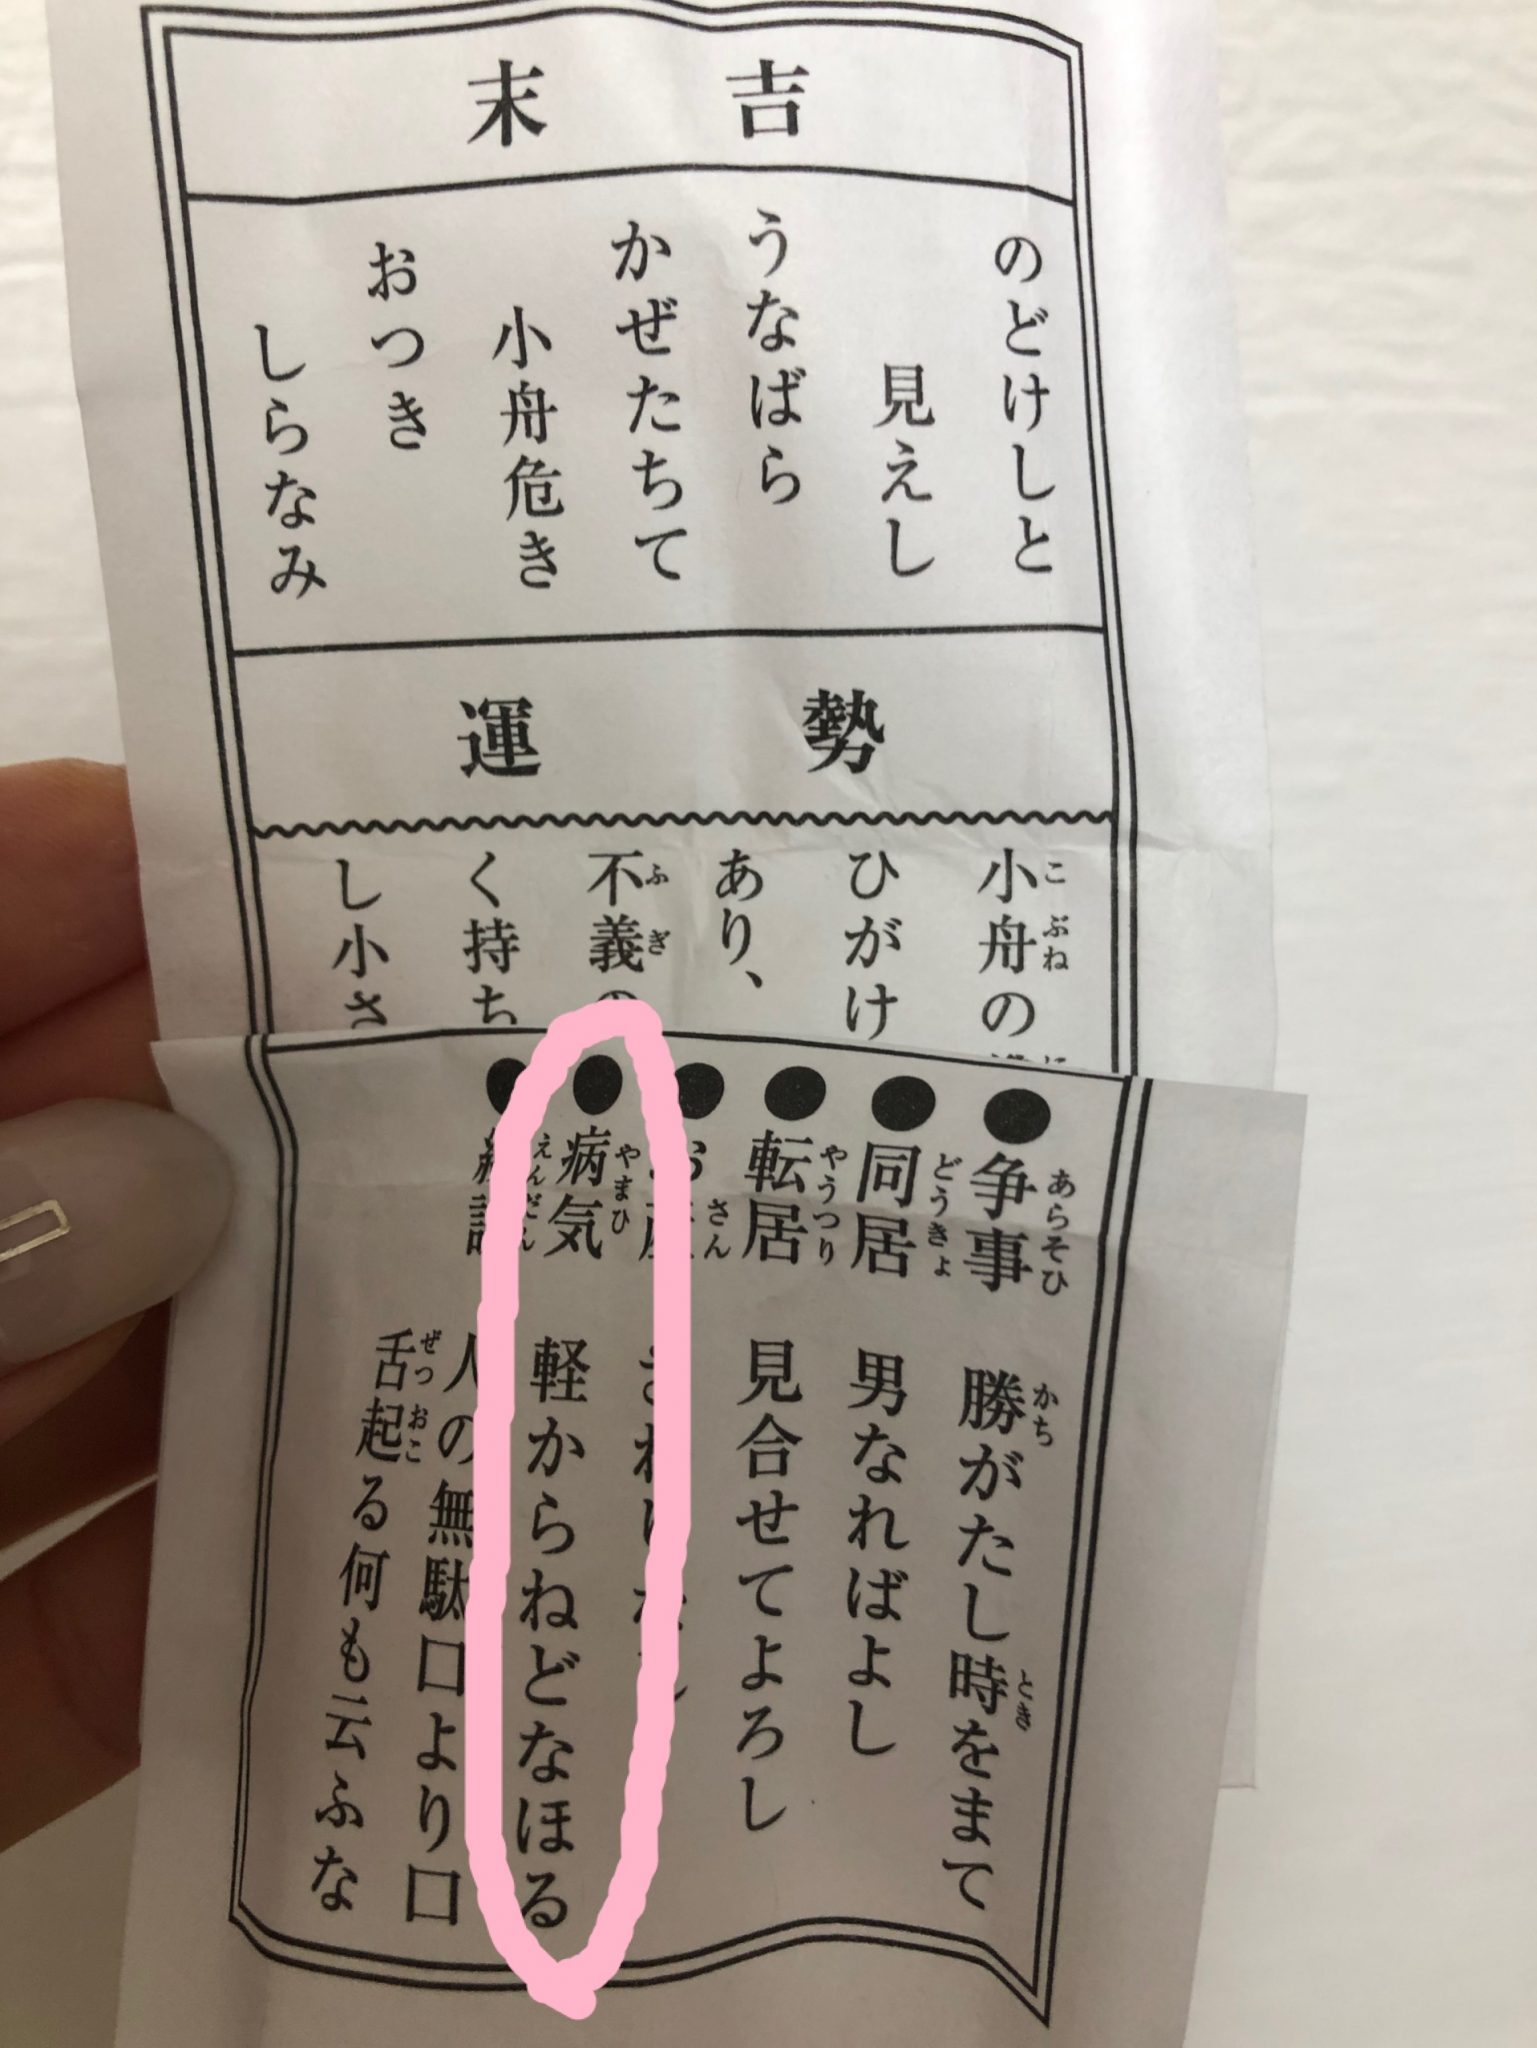 末吉
のどけしと
見えし
うなばら
かぜたちて
小舟危き
おつき
しらなみ
運勢
小舟の
ひがけ
あり、
不義の
く持ち
し小さ
●争事 勝がたし時をまて
●同居 男なればよし
●転居 見合せてよろし
●お産
●病気 軽からねどなほる
●縁談 人の無駄口より口
舌起る何も云ふな